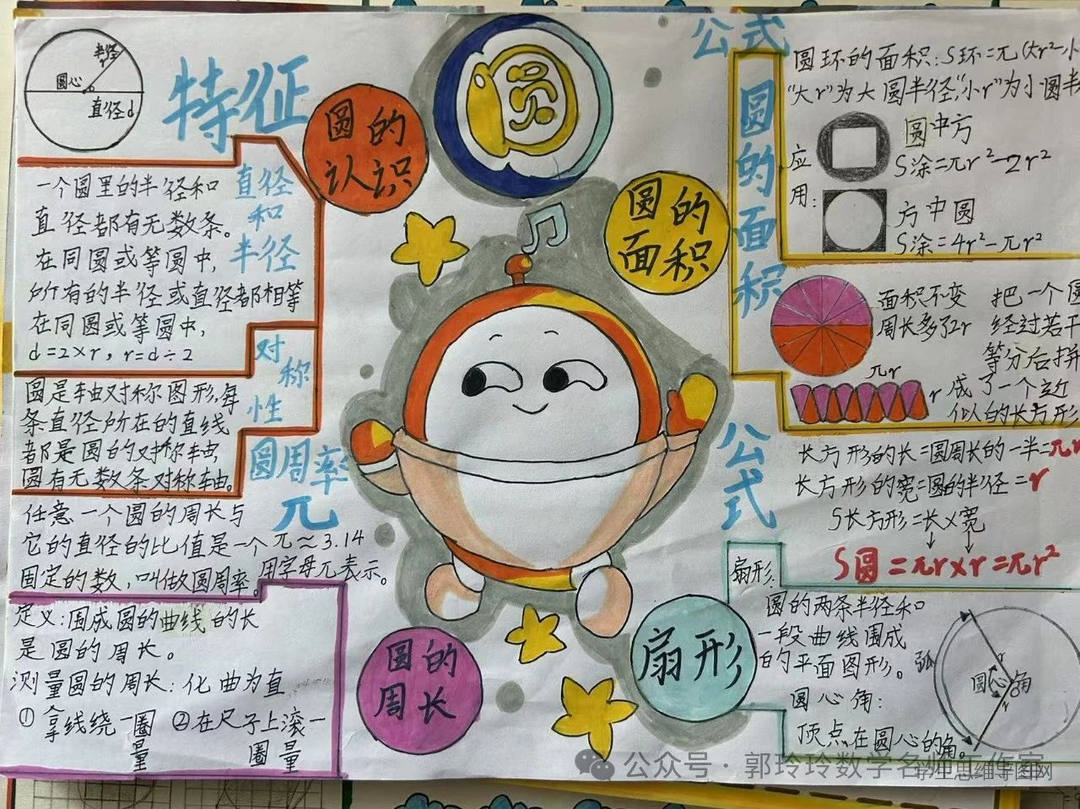 半径
圆心
直径d
特征
圆的
认识
圆
公式
圆的面积
圆环的面积:S环=π(大r²-小
"大r"为大圆半径,"小r"为小圆半
应用:
圆中方
S涂=πr²-2r²
方中圆
S涂=4r²-πr²
圆的
面积
直径
和
半径
一个圆里的半径和
直径都有无数条。
在同圆或等圆中,
所有的半径或直径都相等
在同圆或等圆中,
d=2×r,r=d÷2
面积不变
周长多了2r
把一个圆
经过若干
等分后拼
成了一个近
似的长方形
πr
r
对称性
圆是轴对称图形,每
条直径所在的直线
都是圆的对称轴
圆有无数条对称轴。
圆周率
π
任意一个圆的周长与
它的直径的比值是一个
固定的数,叫做圆周率。
π≈3.14
用字母π表示。
公式
长方形的长=圆周长的一半=πr
长方形的宽=圆的半径=r
S长方形=长×宽
S圆=πr×r=πr²
定义:围成圆的曲线的长
是圆的周长。
测量圆的周长:化曲为直
①拿线绕一圈量
②在尺子上滚一圈量
圆的
周长
扇形
扇形
圆的两条半径和
一段曲线围成
的平面图形。
圆心角:
顶点在圆心的角。
弧
r
圆心角
公众号·郭玲玲数学名师工作室